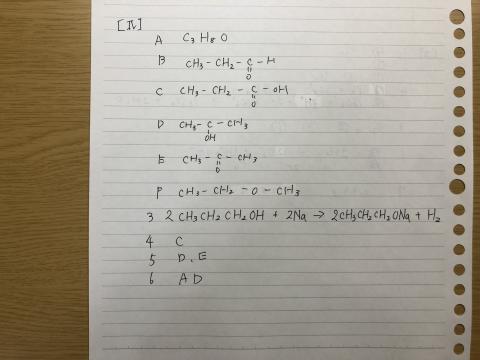 [Ⅳ]
A C3H8O
B CH3-CH2-C-H
O
C CH3-CH2-C-OH
O
D CH3-C-CH3
OH
E CH3-C-CH3
O
F CH3-CH2-O-CH3
3 2CH3CH2CH2OH + 2Na → 2CH3CH2CH2ONa + H2
4 C
5 D、E
6 A D